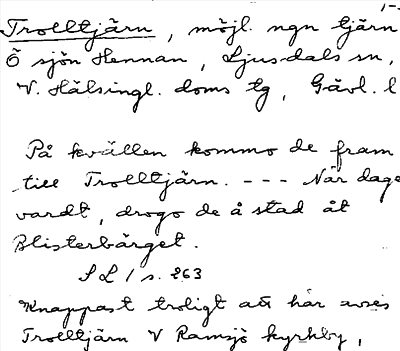 Trolltjärn, möjl. ngn tjärn
Ö sjön Hennan, Ljusdals sn,
V. Hälsingl. doms tg, Gävl. l
På kvällen kommo de fram
till Trolltjärn. --- När dage
vardt, drogo de å stad åt
Blisterbärget.
SL 1 s. 263
Knappast troligt att här avses
Trolltjärn V Ramsjö kyrkby,